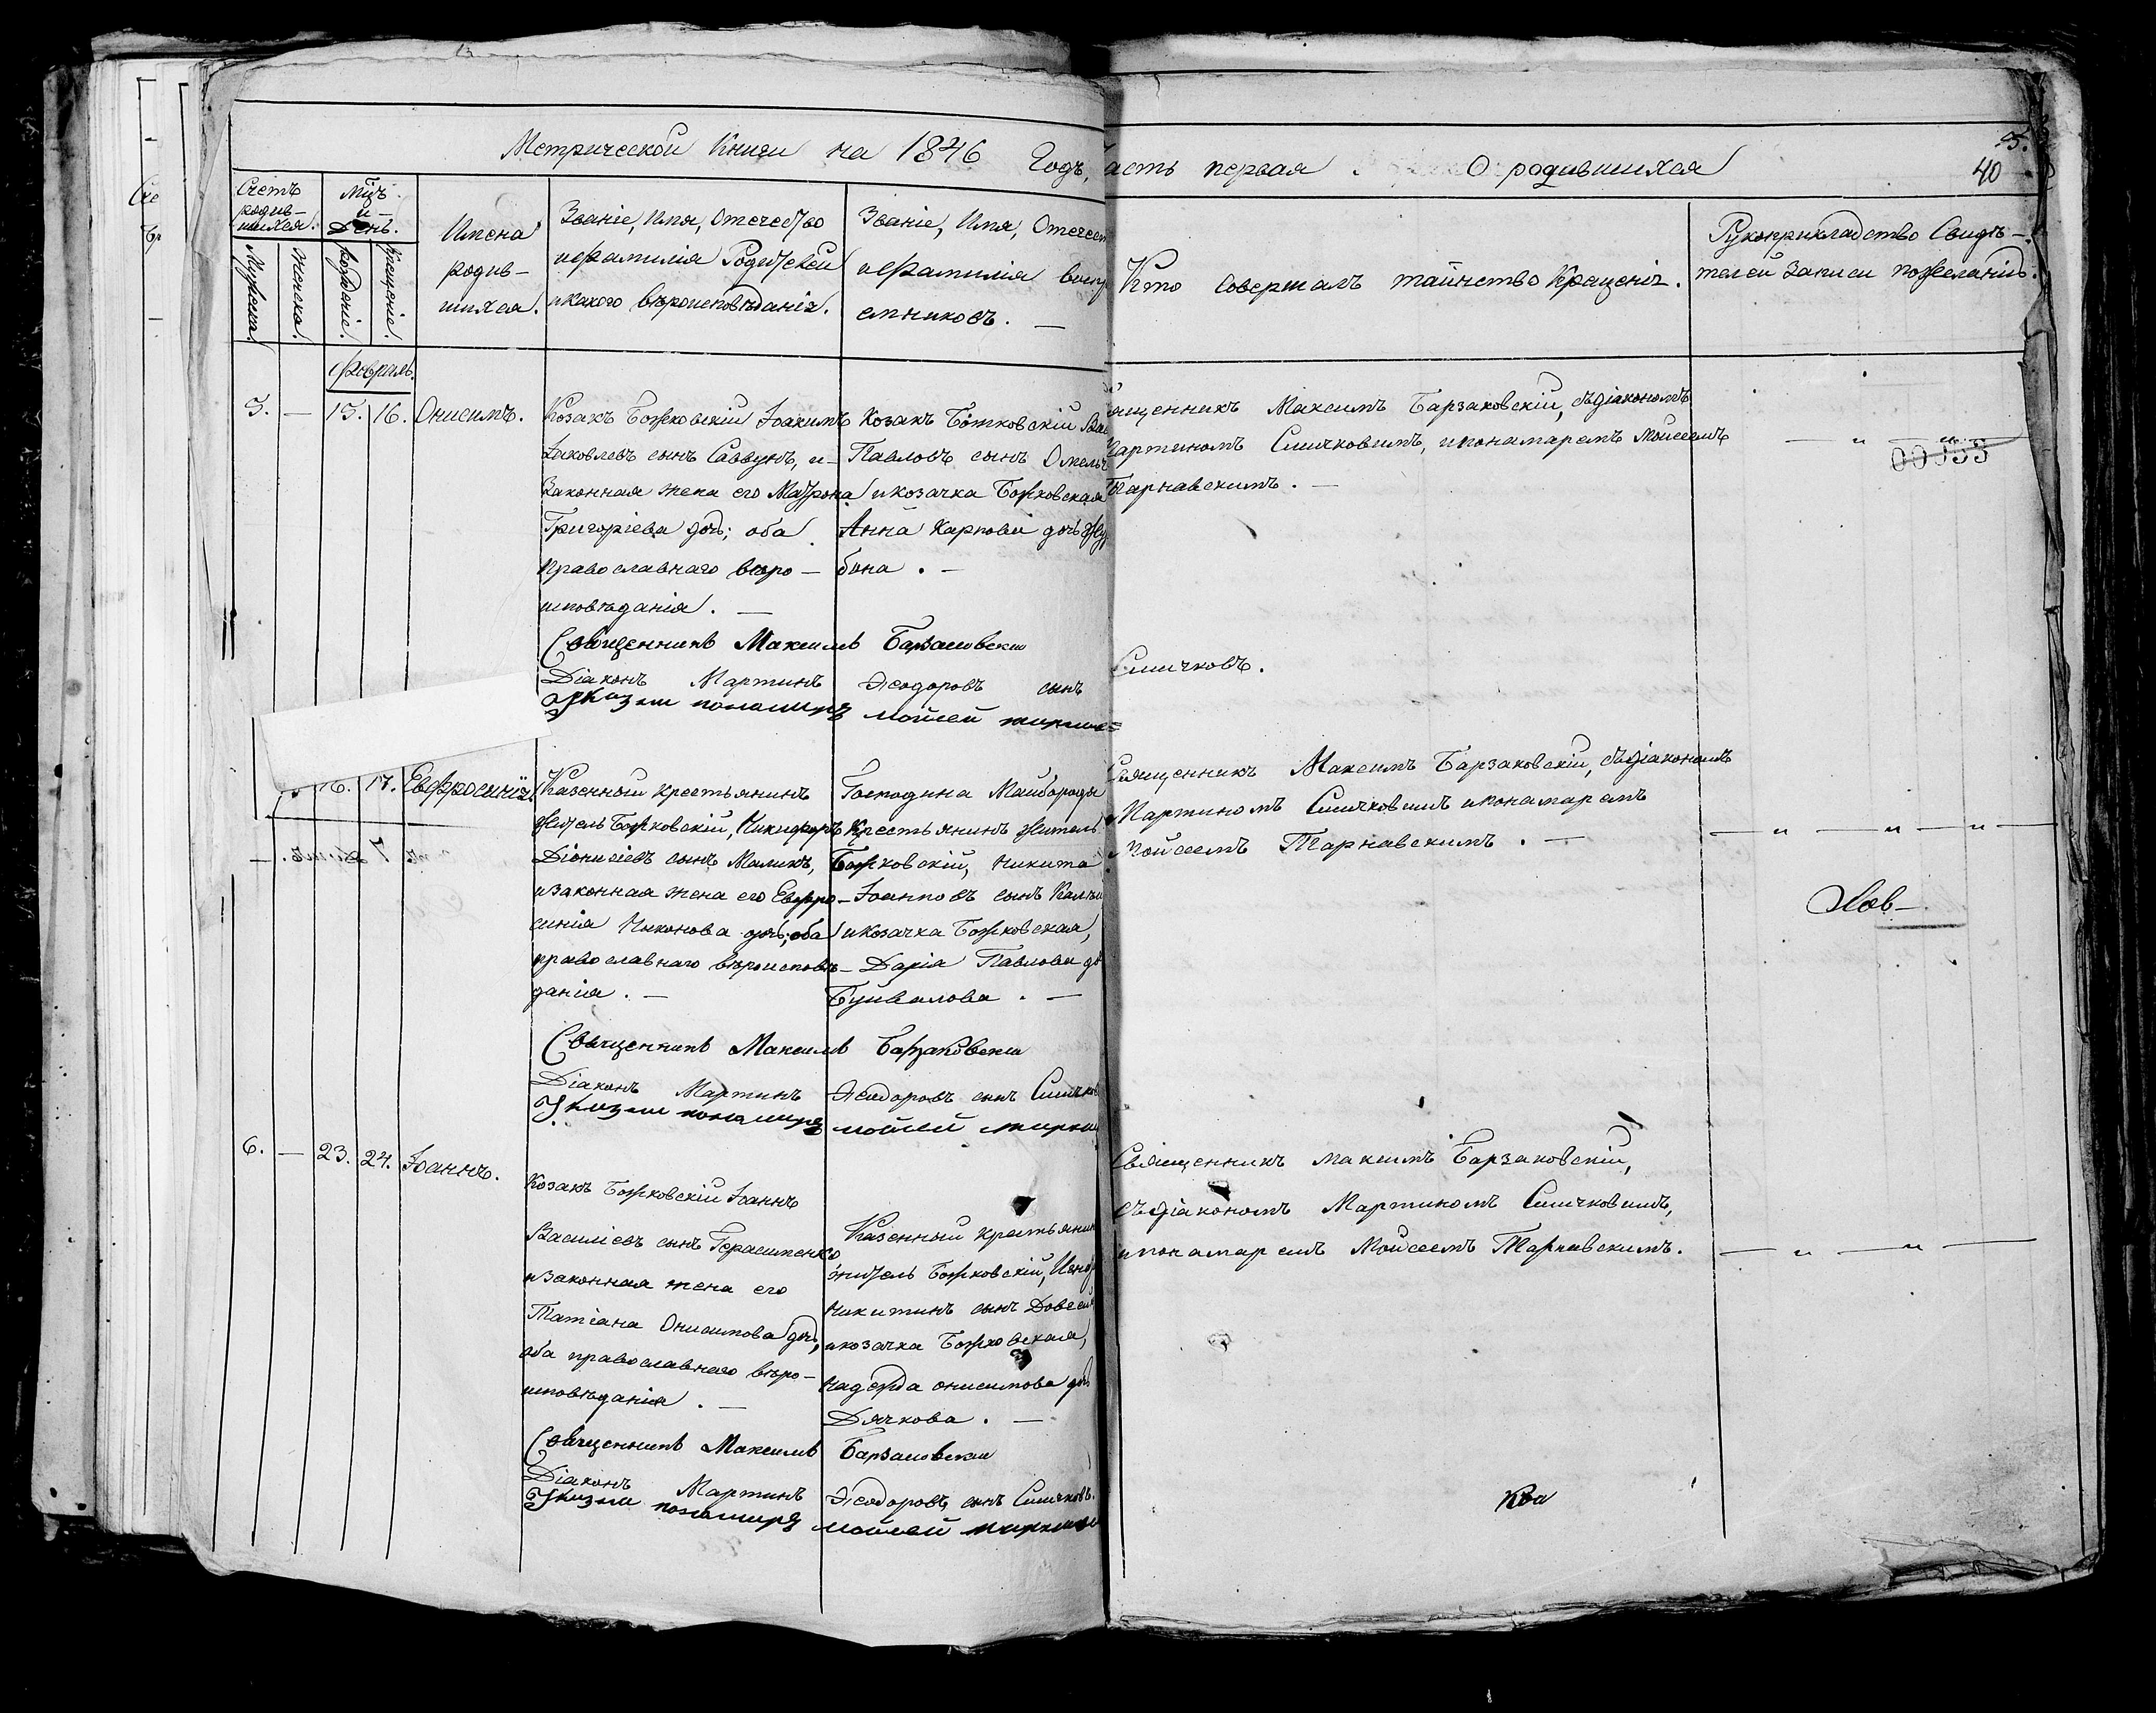 Метрической Книги на 1846 Годъ,
асть первая О родившихся
5.
40
Счетъ родив-шихся.
Мцъ и День.
Мужеска.
Женска.
рожденіе.
крещеніе.
Имена родив-шихся.
Званіе, Имя, Отечество
и Фамилія Родителей
и какого вѣроисповѣданія.
Званіе, Имя, Отечест
и Фамилія воспр
емниковъ. —
Кто совершалъ таинство Крещенія.
Рукоприкладство Свидѣ-
телей записи пожеланію.
Февраль.
5. — 15. 16. Онисимъ.
Козакъ Божковскій Іоакимъ
Іаковлевъ сынъ Саввунъ, и-
Законная жена его Матрона
Григоріева дочь; оба
православнаго вѣро-
исповѣданія. —
Козакъ Божковскій
Павловъ сынъ
и козачка Божковская
Анна Карпова дочь
бина. —
ященникъ Максимъ Барзаковскій, съ діакономъ
Мартиномъ Смичковимъ, и понамаремъ Мойсеемъ
Тарнавскимъ. —
— " — " —
00555
Священникъ Максимъ Барзаковскій
Діаконъ Мартинъ Ѳеодоровъ сынъ
Смичковъ.
понамарь Мойсей
16. 17. Евфросинія
Казенный крестьянинъ
житель Божковскій, Никифоръ
Діонисіевъ сынъ Маликъ,
и законная жена его Евфро-
синія Никонова дочь; оба
православнаго вѣроисповѣ-
данія. —
Господина Майбороды
Крестьянинъ житель
Божковскій, Никита
Іоанновъ сынъ
и козачка Божковская,
Дарія Павлова
Бушвалова. —
Священникъ Максимъ Барзаковскій, съ діакономъ
Мартиномъ Смичковимъ и понамаремъ
Мойсеемъ Тарнавскимъ. —
— " — " — " —
Священникъ Максимъ Барзаковскій
Діаконъ Мартинъ Ѳеодоровъ сынъ Смичков
понамарь Мойсей
6. — 23. 24. Іоаннъ.
Козакъ Божковскій Іоаннъ
Василіевъ сынъ Герасименко
и законная жена его
Татіана Онисимова дочь,
оба православнаго вѣро-
исповѣданія. —
Казенный крестьянин
житель Божковскій,
Никитинъ сынъ
и козачка Божковская,
Надежда Онисимова дочь
Дячкова. —
Священникъ Максимъ Барзаковскій,
съ діакономъ Мартиномъ Смичковимъ,
и понамаремъ Мойсеемъ Тарнавскимъ.
— " — " —
Священникъ Максимъ Барзаковскій
Діаконъ Мартинъ Ѳеодоровъ сынъ Смичковъ.
понамарь Мойсей